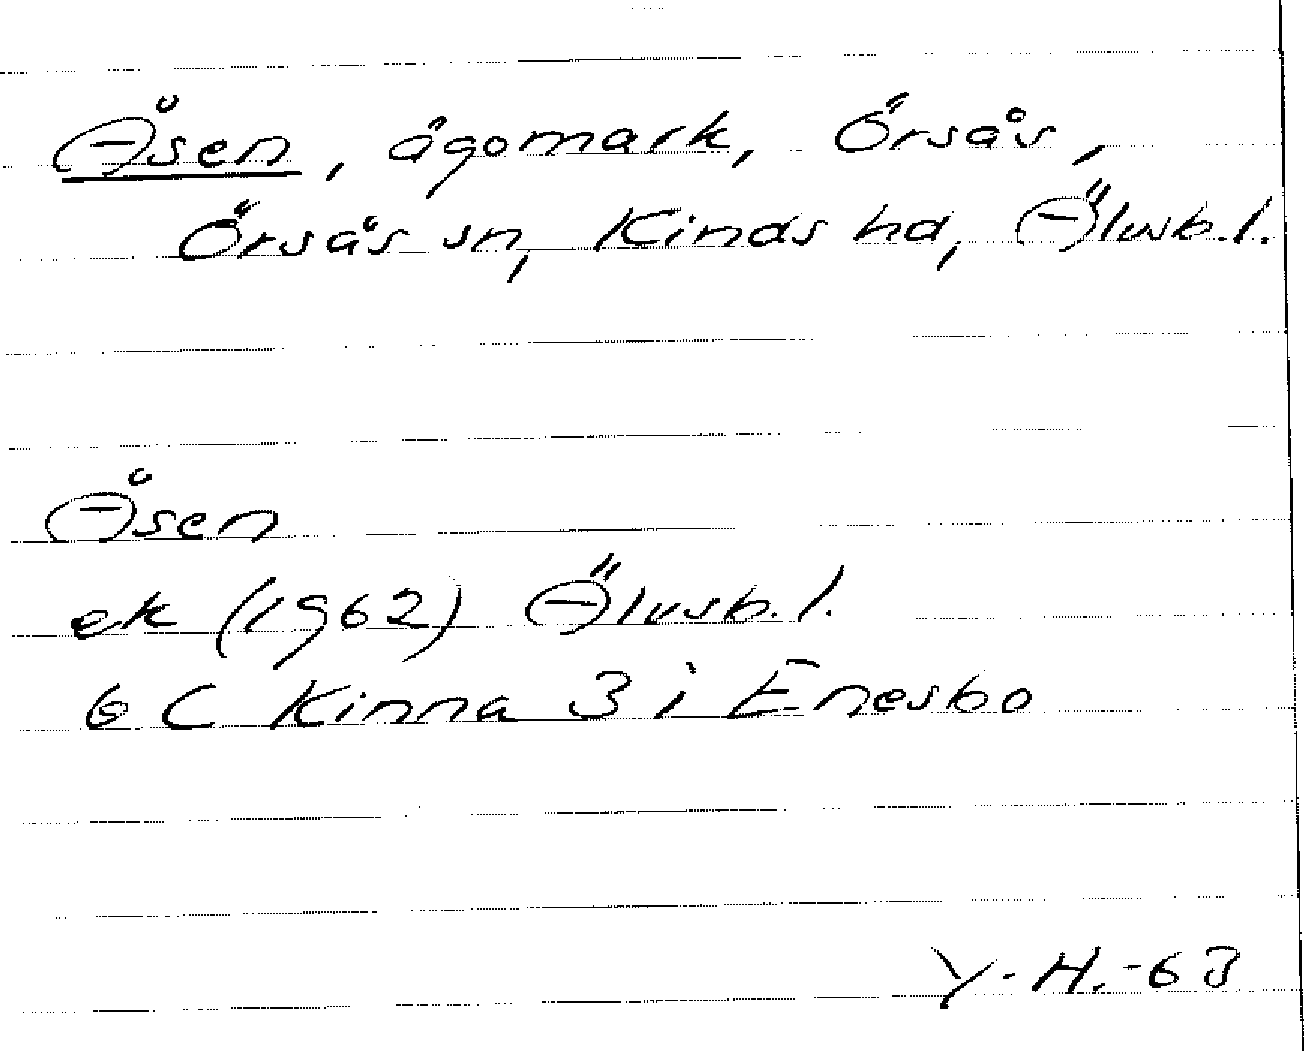 Åsen, ägomark, Örsås,
Örsås sn, Kinds hd, Älvsb.l.
Åsen
ek (1962) Älvsb.l.
6 C Kinna 3 i Enesbo
Y.H.-63